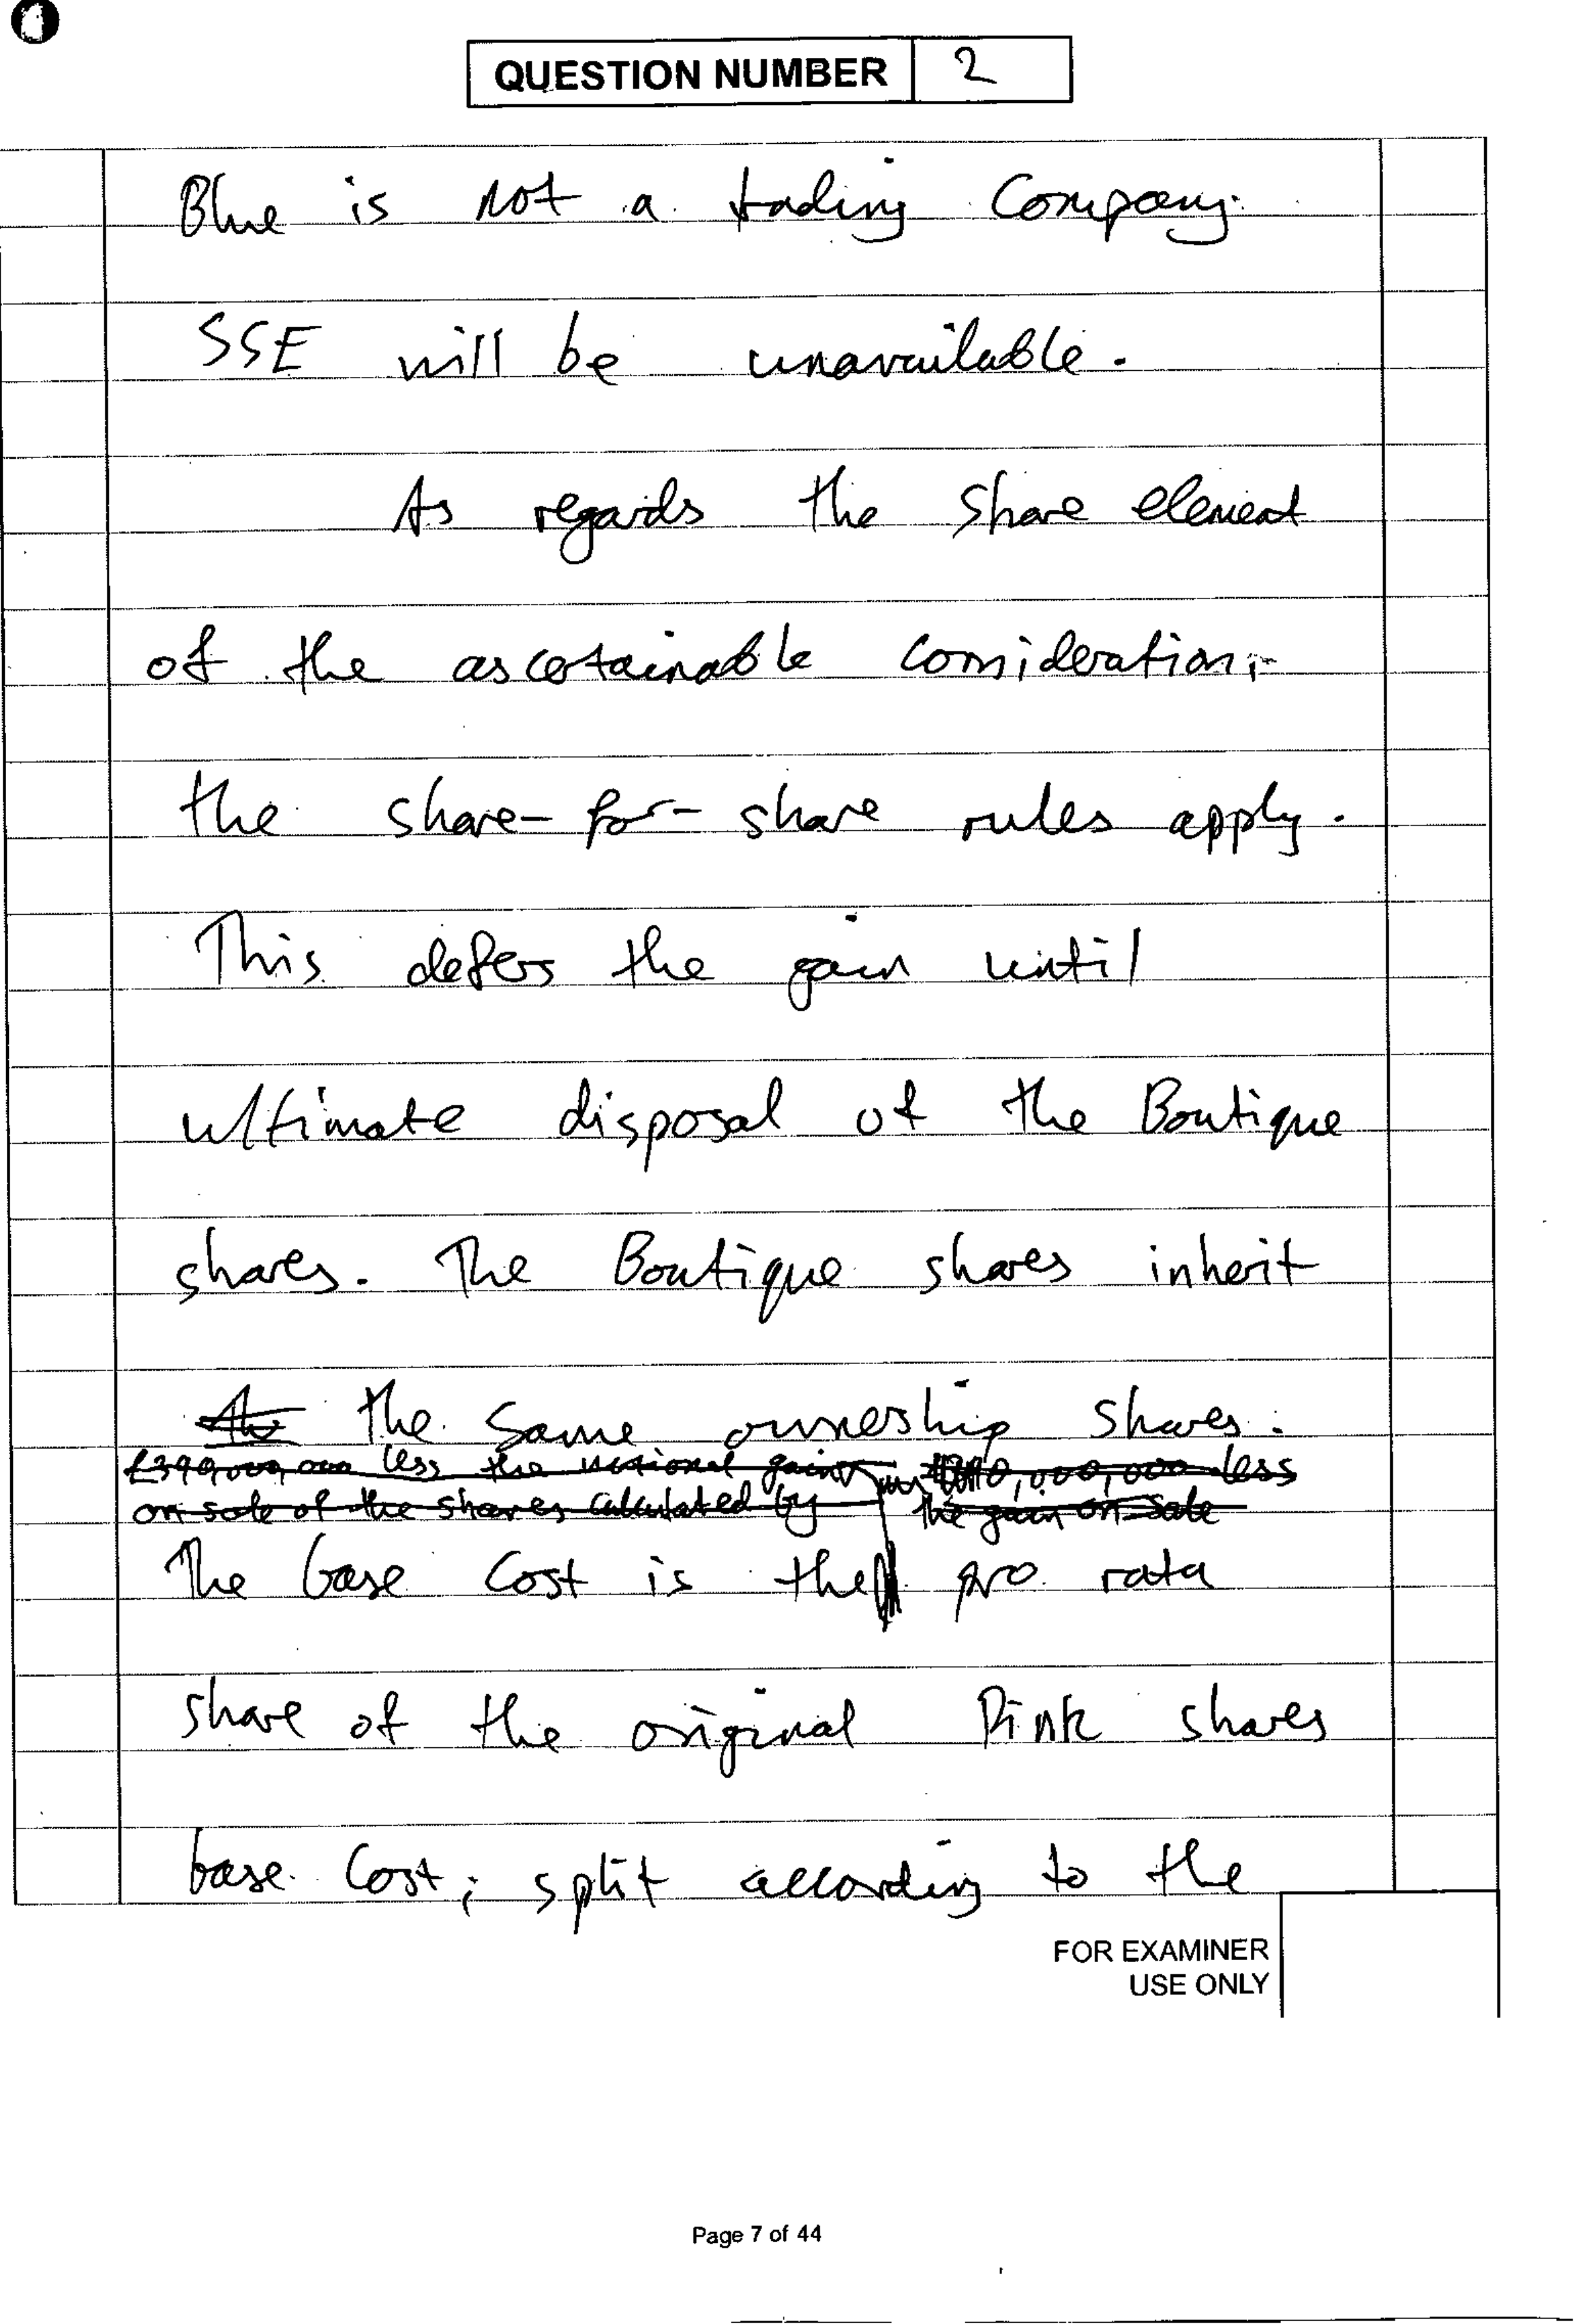 QUESTION NUMBER 2
Blue is not a trading Company.
SSE will be unavailable.
As regards the share element
of the ascertainable consideration,
the share-for-share rules apply.
This defers the gain until
ultimate disposal of the Boutique
shares. The Boutique shares inherit
the same ownership shares.
less the notional gain less
on sale of the shares calculated by the gain on sale
The base cost is the pro rata
share of the original Pink shares
base cost, split according to the
FOR EXAMINER
USE ONLY
Page 7 of 44